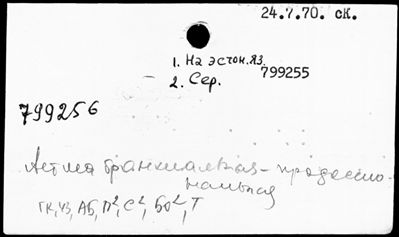 24.7.70. ск.
1. На эстон. яз.
799255
2. Сер.
799256
Астма бронхиальная - профессио-
нальная
ГК, ЧЗ, АБ, П², С², Бо², Т